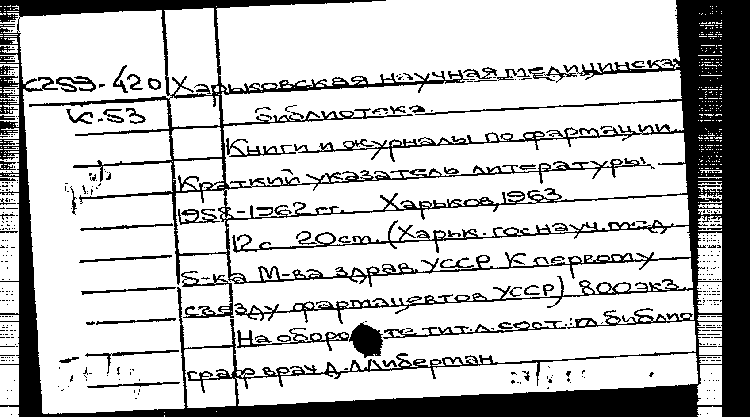 С259-420 Харьковская научная медицинская
К.53 библиотека.
Книги и журналы по фармации.
Краткий указатель литературы
1958-1962 гг. Харьков, 1963
12 с 20 см. (Харьк. гос науч. мед
б-ка М-ва здрав. УССР. К первому
съезду фармацевтов УССР) 800 экз.
На обороте тит. л. сост.: гл библио
граф врач Д. Л. Либерман